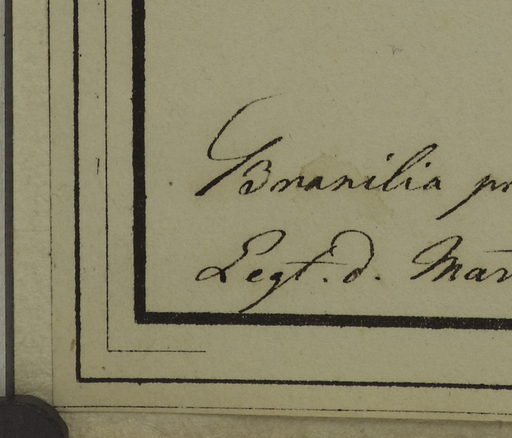 Branilia pr
Legt. d. Mar